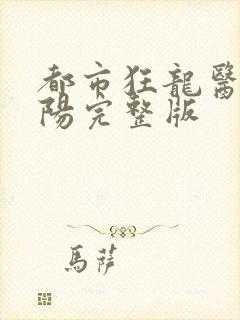 都市狂龍醫
陽完整版
馬薩